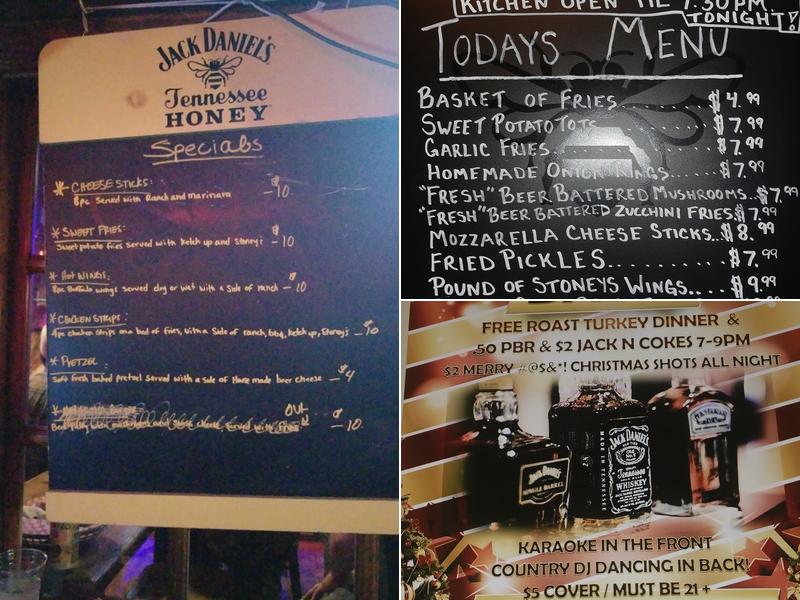 JACK DANIEL'S
Tennessee
HONEY
Specials
* CHEESE STICKS:
8pc Served with Ranch and marinara - $10
* SWEET FRIES:
Sweet potato fries served with ketchup and Stoneys - $10
* HOT WINGS:
8pc Buffalo wings served dry or wet with a side of ranch - $10
* CHICKEN STRIPS:
4pc chicken strips on a bed of fries, with a side of ranch, bbq, ketchup, Stoneys - $10
* PRETZEL
Soft fresh baked pretzel served with a side of Home made beer cheese - $4
OUT
served with fries - $10
KITCHEN OPEN TIL 7:30PM
TONIGHT!
TODAYS MENU
BASKET OF FRIES........$4.99
SWEET POTATO TOTS........$7.99
GARLIC FRIES........$7.99
HOMEMADE ONION RINGS....$7.99
"FRESH" BEER BATTERED MUSHROOMS...$7.99
"FRESH" BEER BATTERED ZUCCHINI FRIES.$7.99
MOZZARELLA CHEESE STICKS..$8.99
FRIED PICKLES..........$7.99
POUND OF STONEYS WINGS....$9.99
FREE ROAST TURKEY DINNER &
.50 PBR & $2 JACK N COKES 7-9PM
$2 MERRY #@$&*! CHRISTMAS SHOTS ALL NIGHT
JACK DANIEL'S
SINGLE BARREL
MADE IN TENNESSEE
JACK DANIEL'S
OLD NO. 7
Tennessee
WHISKEY
KARAOKE IN THE FRONT
COUNTRY DJ DANCING IN BACK!
$5 COVER / MUST BE 21 +